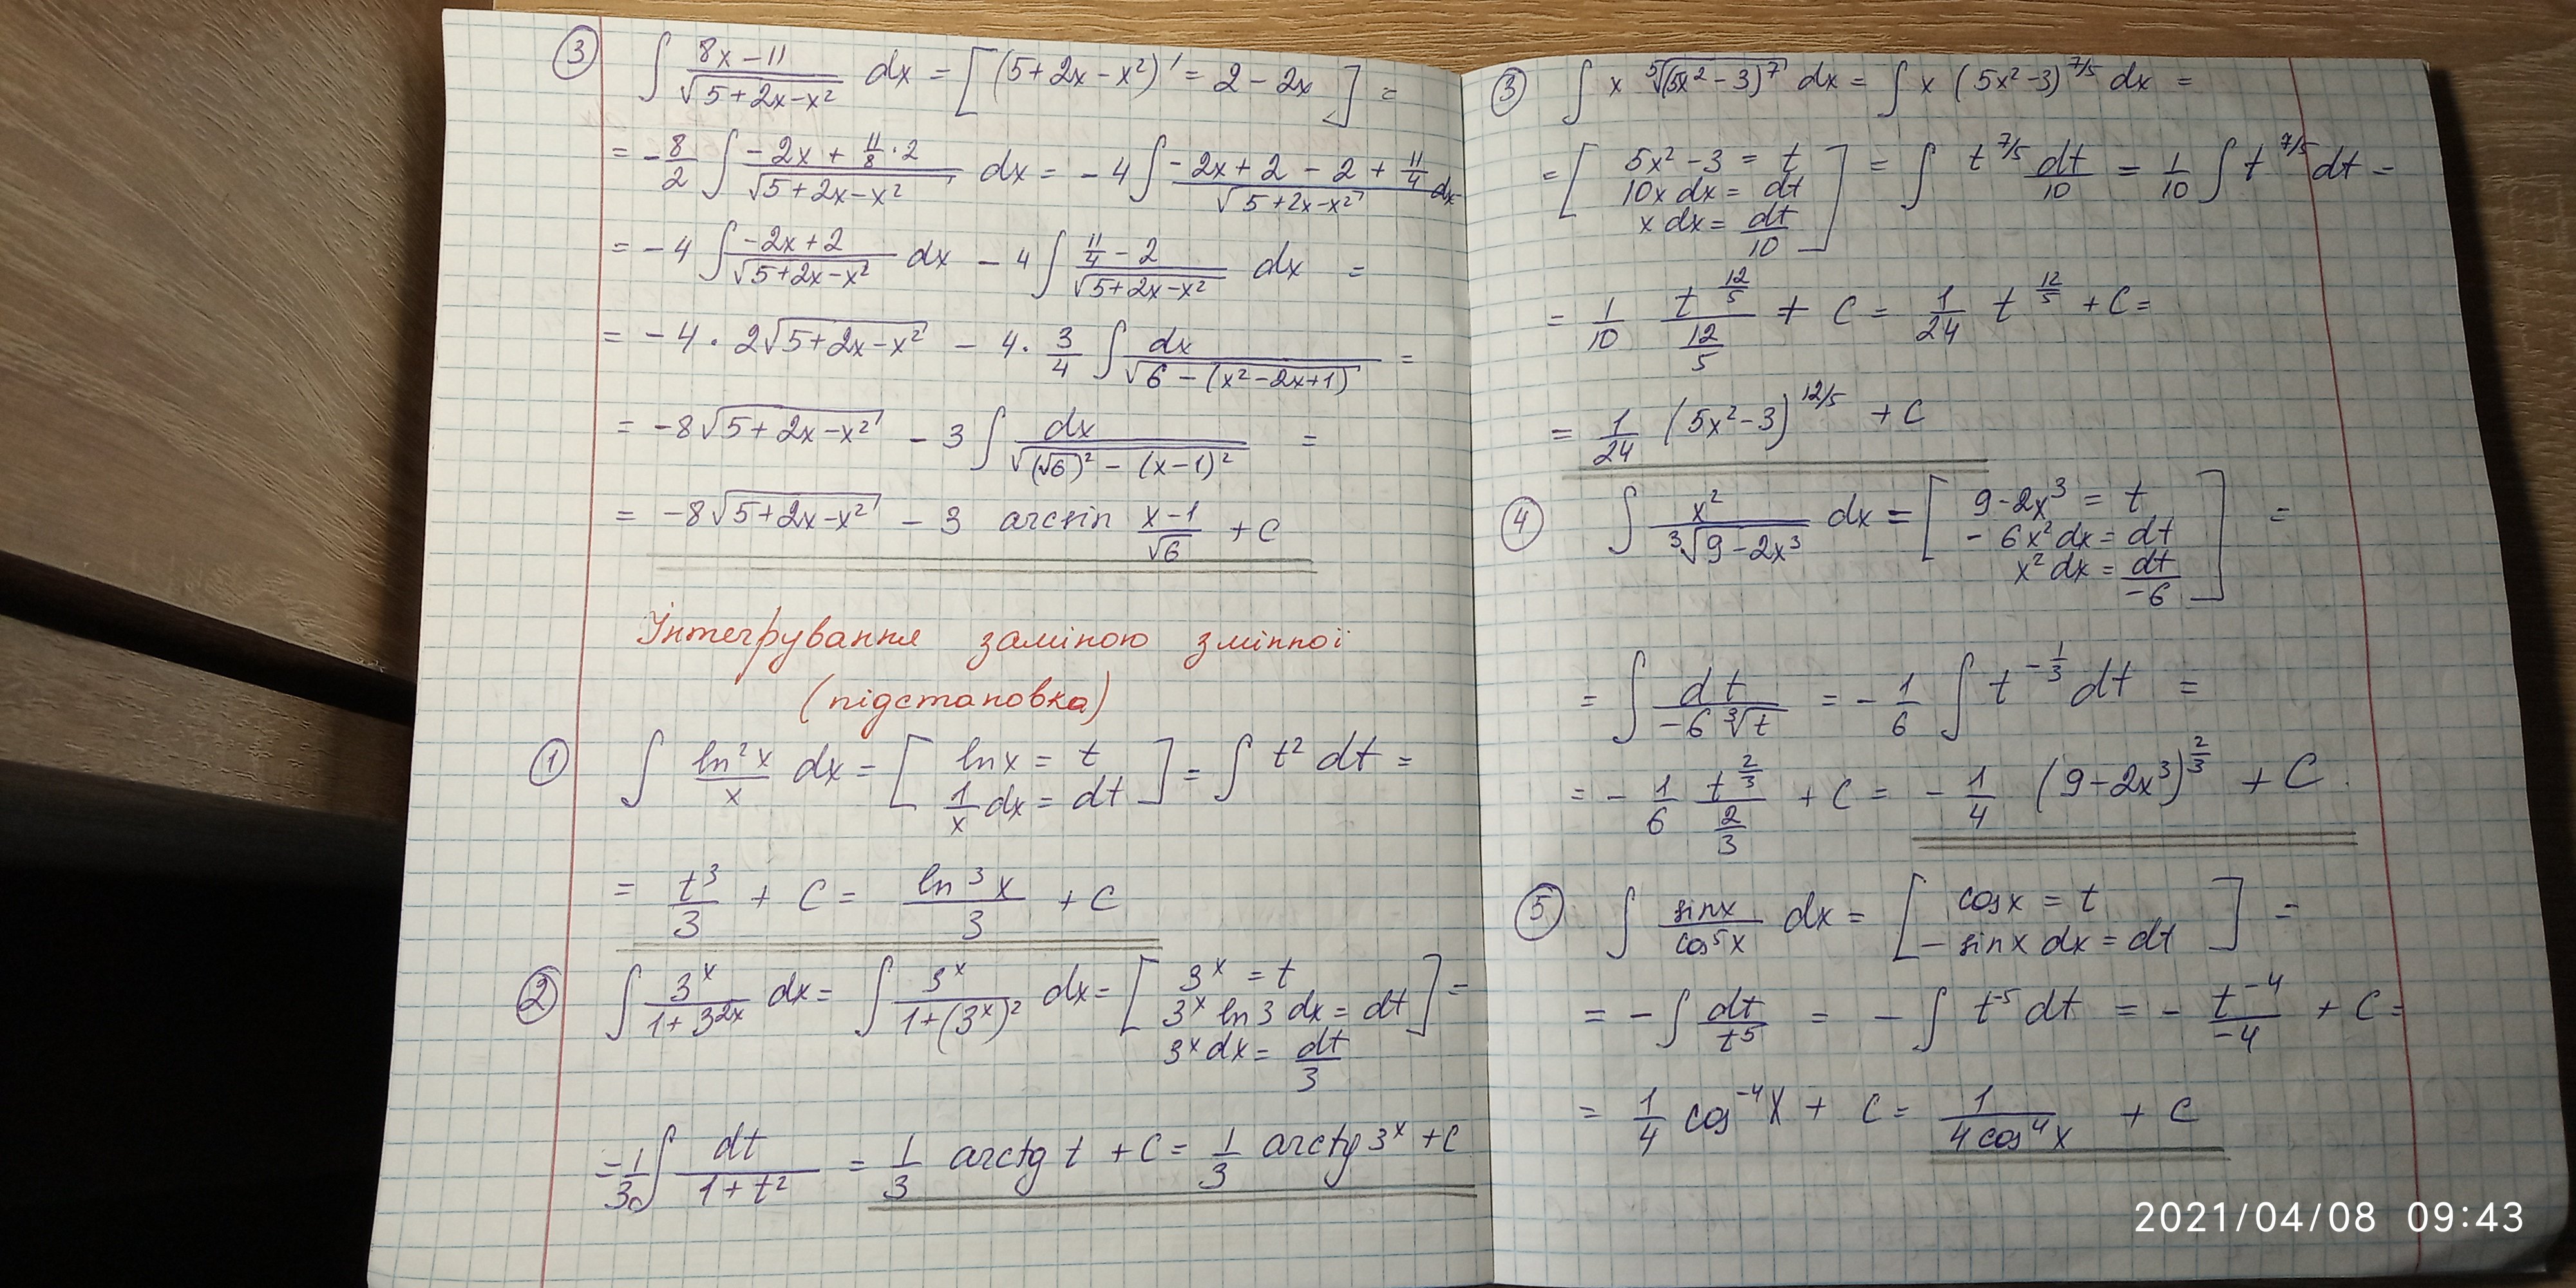 ③ ∫ (8x-11)/√(5+2x-x²) dx = [(5+2x-x²)' = 2-2x] =
= -8/2 ∫ (-2x + 11/8·2)/√(5+2x-x²) dx = -4 ∫ (-2x+2-2+11/4)/√(5+2x-x²) dx
= -4 ∫ (-2x+2)/√(5+2x-x²) dx - 4 ∫ (11/4-2)/√(5+2x-x²) dx =
= -4·2√(5+2x-x²) - 4·3/4 ∫ dx/√(6-(x²-2x+1)) =
= -8√(5+2x-x²) - 3 ∫ dx/√((√6)²-(x-1)²) =
= -8√(5+2x-x²) - 3 arcsin (x-1)/√6 + C
Інтегрування заміною змінної
(підстановка)
① ∫ ln²x/x dx = [ lnx = t
1/x dx = dt ] = ∫ t² dt =
= t³/3 + C = ln³x/3 + C
② ∫ 3ˣ/(1+3²ˣ) dx = ∫ 3ˣ/(1+(3ˣ)²) dx = [ 3ˣ = t
3ˣ ln3 dx = dt ] =
3ˣ dx = dt/3
= 1/3 ∫ dt/(1+t²) = 1/3 arctg t + C = 1/3 arctg 3ˣ + C
③ ∫ x ⁵√((5x²-3)⁷) dx = ∫ x (5x²-3)^(7/5) dx =
= [ 5x²-3 = t
10x dx = dt
x dx = dt/10 ] = ∫ t^(7/5) dt/10 = 1/10 ∫ t^(7/5) dt =
= 1/10 t^(12/5)/(12/5) + C = 1/24 t^(12/5) + C =
= 1/24 (5x²-3)^(12/5) + C
④ ∫ x²/³√(9-2x³) dx = [ 9-2x³ = t
-6x² dx = dt
x² dx = dt/-6 ] =
= ∫ dt/(-6 ³√t) = -1/6 ∫ t^(-1/3) dt =
= -1/6 t^(2/3)/(2/3) + C = -1/4 (9-2x³)^(2/3) + C.
⑤ ∫ sinx/cos⁵x dx = [ cosx = t
-sinx dx = dt ] =
= -∫ dt/t⁵ = -∫ t⁻⁵ dt = - t⁻⁴/-4 + C =
= 1/4 cos⁻⁴x + C = 1/(4cos⁴x) + C
2021/04/08 09:43